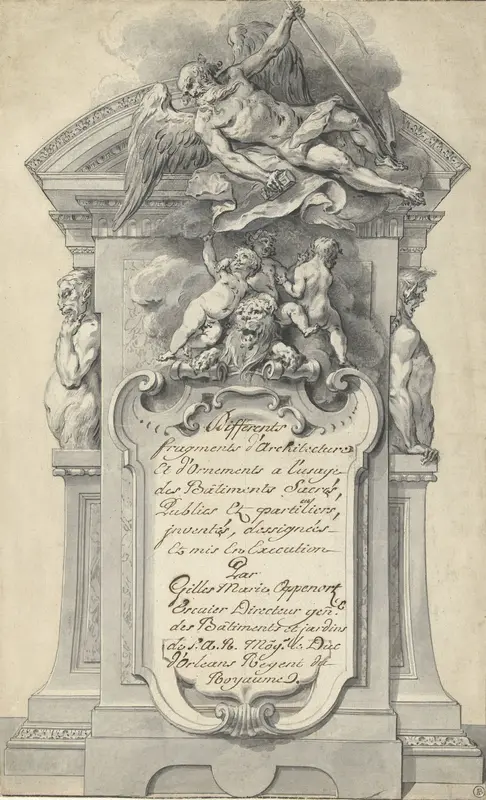 Differents
fragments d'Architecture
Et d'Ornements a l'usage
des Bâtiments Sacrés,
Publics Et partiliers,
cu
inventés, dessignées
Et mis En Execution
Par
Gilles Marie, Oppenort
Escuier Directeur gen.
des Bâtiments et jardins
de s. A. R. Monsg.r le Duc
d'Orleans Regent du
Royaume.